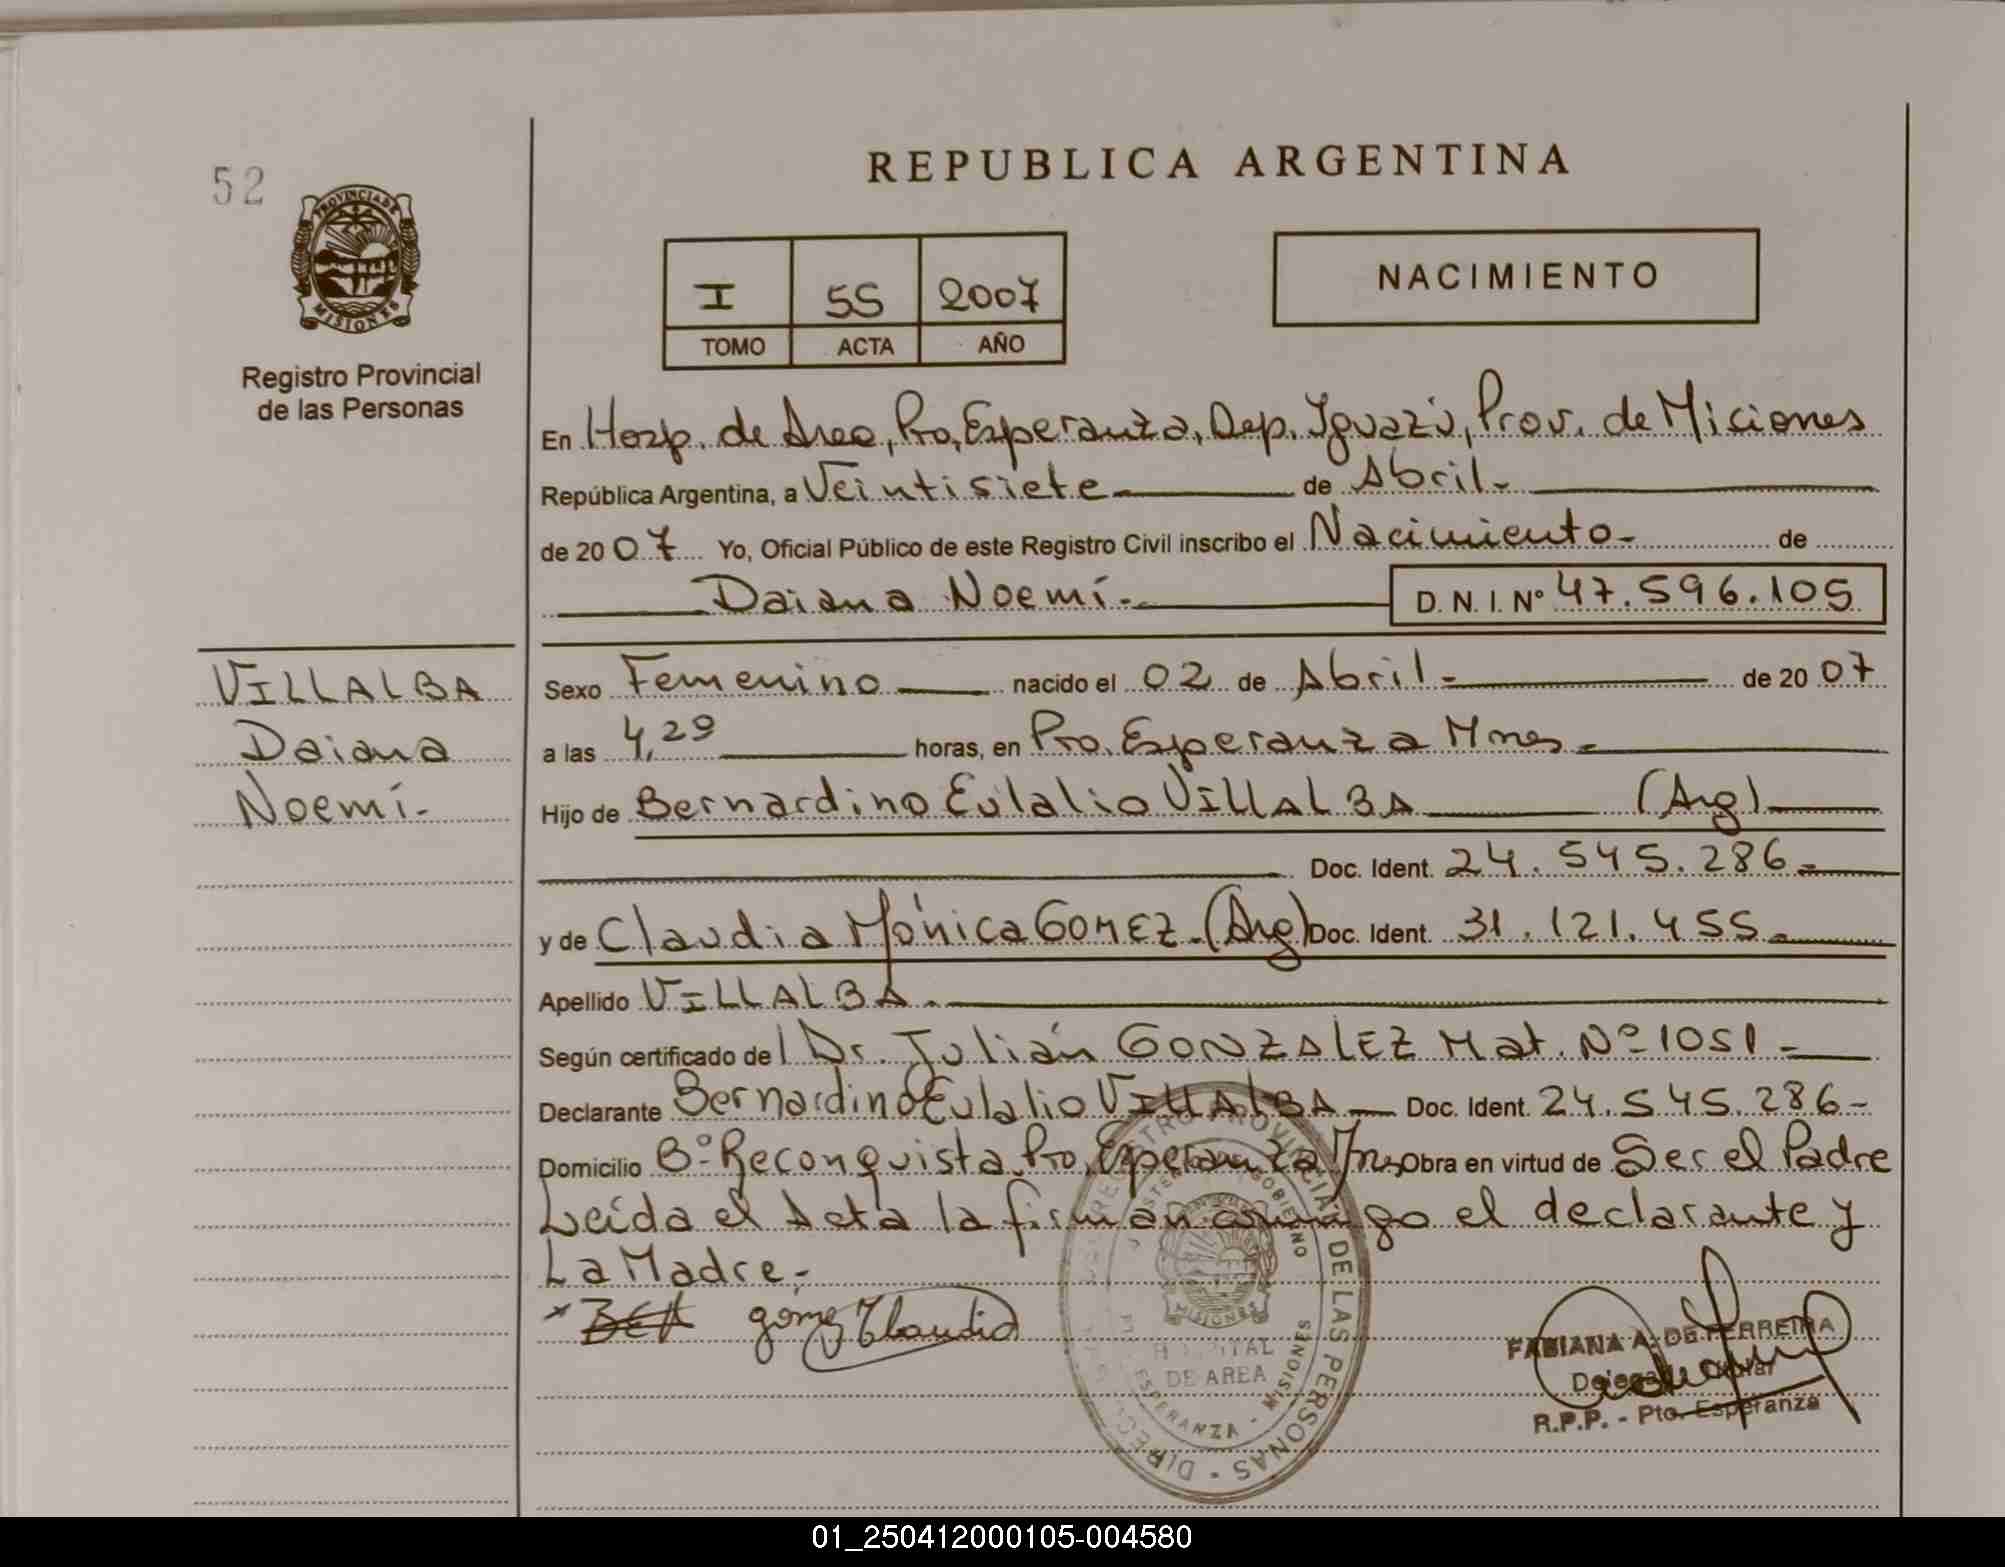 52
PROVINCIA DE
MISIONES
Registro Provincial
de las Personas
REPUBLICA ARGENTINA
I 55 2007
TOMO ACTA AÑO
NACIMIENTO
En Hosp. de Area, Pto, Esperanza, Dep. Iguazú, Prov. de Miciones
República Argentina, a Veintisiete de Abril.-
de 2007 Yo, Oficial Público de este Registro Civil inscribo el Nacimiento- de
Daiana Noemí.- D. N. I. Nº 47.596.105
VILLALBA
Daiana
Noemí.-
Sexo Femenino nacido el 02 de Abril- de 2007
a las 4,29 horas, en Pto. Esperanza Mnes.-
Hijo de Bernardino Eulalio VILLALBA (Arg)
Doc. Ident. 24.545.286.-
y de Claudia Mónica GOMEZ.(Arg) Doc. Ident. 31.121.455.-
Apellido VILLALBA.-
Según certificado del Dr. Julián GONZALEZ Mat. Nº 1051-
Declarante Bernardino Eulalio VILLALBA Doc. Ident. 24.545.286-
Domicilio Bº Reconquista Pto, Esperanza Mnes Obra en virtud de Ser el Padre
Leída el Acta la firman conmigo el declarante y
La Madre.-
gómez Claudia
REGISTRO PROVINCIAL DE LAS PERSONAS
GOBIERNO
MISIONES
HOSPITAL
DE AREA
ESPERANZA - MISIONES
FABIANA A. DE FERREIRA
R.P.P. - Pto. Esperanza
01_250412000105-004580